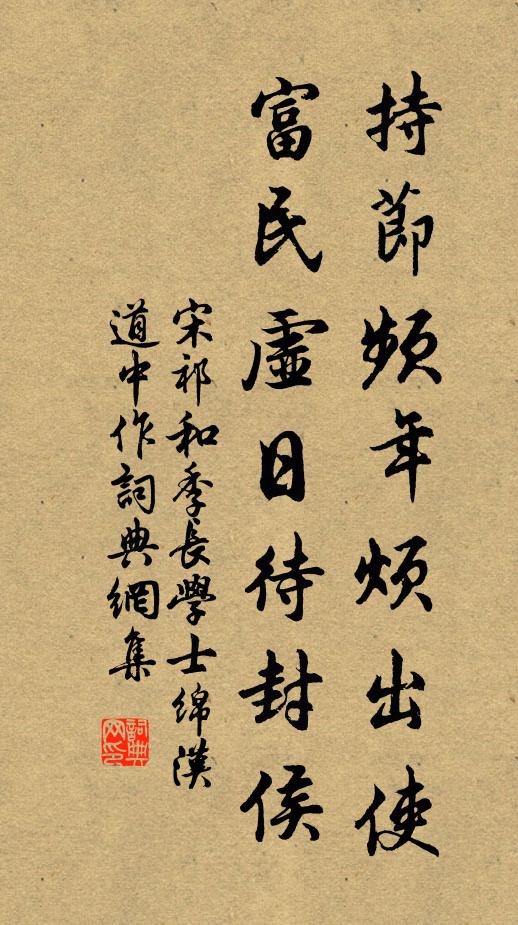 持節頻年煩出使
富民虛日待封侯
宋祁和季長學士綿漢
道中作詞典網集
詞典網印